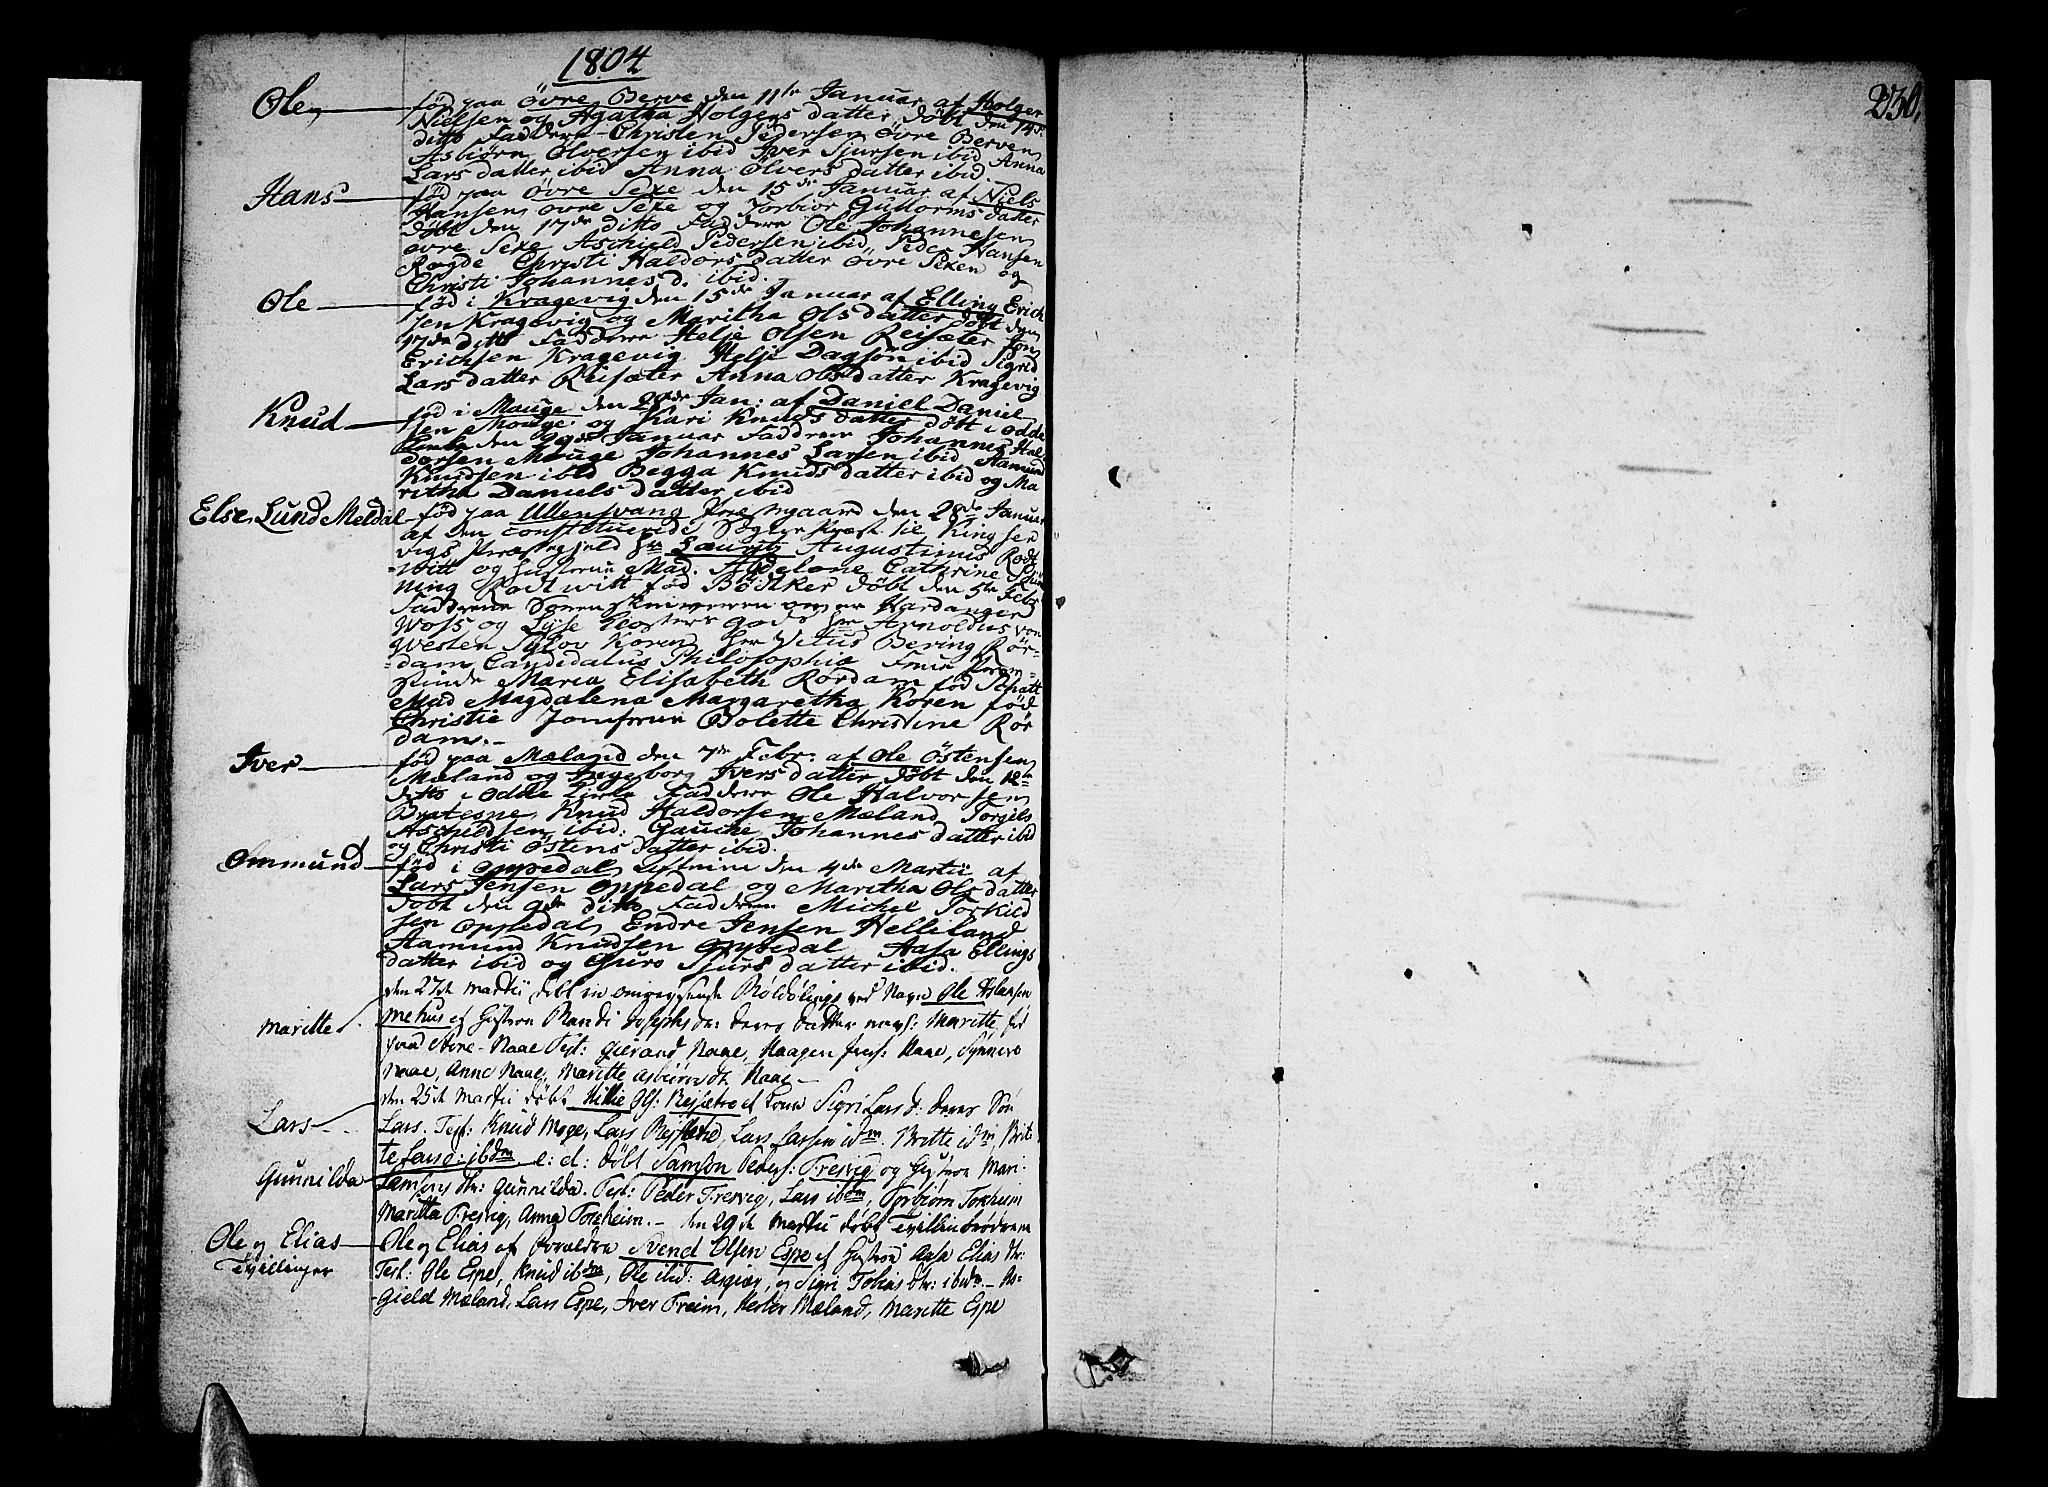 1804
230.
Ole
født paa Øvre Berve den 11te Januar af Holger
Nielsen og Agatha Holgers datter døbt den 14de
ditto Faddere Christen Pedersen Øvre Berven
Asbiørn Ølversen ibid Iver Sjursen ibid Anna
Lars datter ibid Anna Ølvers datter ibid.
Hans
fød paa Øvre Sexe den 15de Januar af Niels
Hansen øvre Sexe og Torbiør Guttorms datter
døbt den 17de ditto Faddere Ole Johannesen
øvre Sexe Aschield Pedersen ibid, Peder Hansen
Rogde Christi Haldors datter Øvre Sexen og
Christi Johannes d. ibid.
Ole
fød i Kragevig den 15de Januar af Elling Erich
sen Kragevig og Maritha Ols datter døbt den
17de ditto Faddere Helje Olsen Reisæter Jon
Erichsen Kragevig Helje Dagsøn ibid Sigrid
Lars datter Reisæter Anna Ols datter Kragevig
Knud
fød i Mouge den Jan: af Daniel Daniel
sen Mouge og Kari Knuds datter døbt i Odde
den Januar Faddere Johannes Hal
dorsen Mouge Johannes Larsen ibid Aamund
Knudsen ibid Begga Knuds datter ibid og Ma
ritha Daniels datter ibid
Else Lund Meldal
fød paa Ullensvang Præstegaard den 28de Januar
af den constituerede Sogne Præst til Kingser
vigs Præstegjeld Hr Lauritz Augustinus Rodt
witt og Hustrue Mad. Abelone Cathrine
ning Rodtwitt fød Bødtker døbt den 5te Febr
Fadderne Sorenskriveren over Hardanger
Woss og Lysse Klosters gods Hr Arnoldus von
Westen Sylov Koren Hr Vitus Bering Rør-
dam Candidatus Philosophiæ Frue
Maria Elisabeth Rørdam fød
Mad Magdalena Margaretha Koren fød
Christie Jomfrue Bolette Christine Rør
dam.
Iver
fød paa Mæland den 7de Febr: af Ole Østensen
Mæland og Ingeborg Ivers datter døbt den 12te
ditto i Odde Kirke Faddere Ole Halvorsen
Bratespe Knud Haldorsen Mæland Torgils
Aschieldsen ibid: Gauche Johannes datter ibid
og Christi Østens datter ibid.
Ommund
fød i Oppedal den 4de Martii af
Lars Jensen Oppedal og Maritha Ols datter
døbt den 9de ditto Faddere Michel Torkild
sen Oppedal, Endre Jensen Helleland
Aamund Knudsen Oppedal Aasa Ellings
datter ibid og Guro Sjurs datter ibid.
Maritte
den 27de Martii døbt en omreysende Røldølings ved Navn Ole Aslaksen
Mehus et Hustroe Randi Josephs dr: deres datter navn: Maritte, fød
paa Store-Naae Test: Gierand Naae, Haagen Naae, Synneve
Naae, Anne Naae, Maritte Asbiørns dr. Naae.—
Lars
den 25de Martii døbt Hellie Ols: Rejsætre et Kone Sigri Lars d: deres Søn
Lars. Test: Knud Moge, Lars Rejsætre, Lars Larsen idm. Britte idm, Brit-
te Lars d: ibdm
Gunnilda
e: d: døbt Samson Peders: Fresvig og Hustroe Mari-
Samsons dr: Gunnilda. Test: Peder Fresvig, Lars ibdm, Torbjørn Torsheim
Maritta Fresvig, Anna Torsheim.—
Ole og Elias
Tvillinger
den 29de Martii døbt Tvillinbrødrene
Ole og Elias af Forældre Svend Olsen Espe et Hustroe Aasa Elias dr:
Test: Ole Espe, Knud ibdm, Ole ibid: Asgiær, og Sigri Tobias dr: ibidm.— As-
gield Mæland, Lars Espe, Iver Freim, Mæland, Maritte Espe